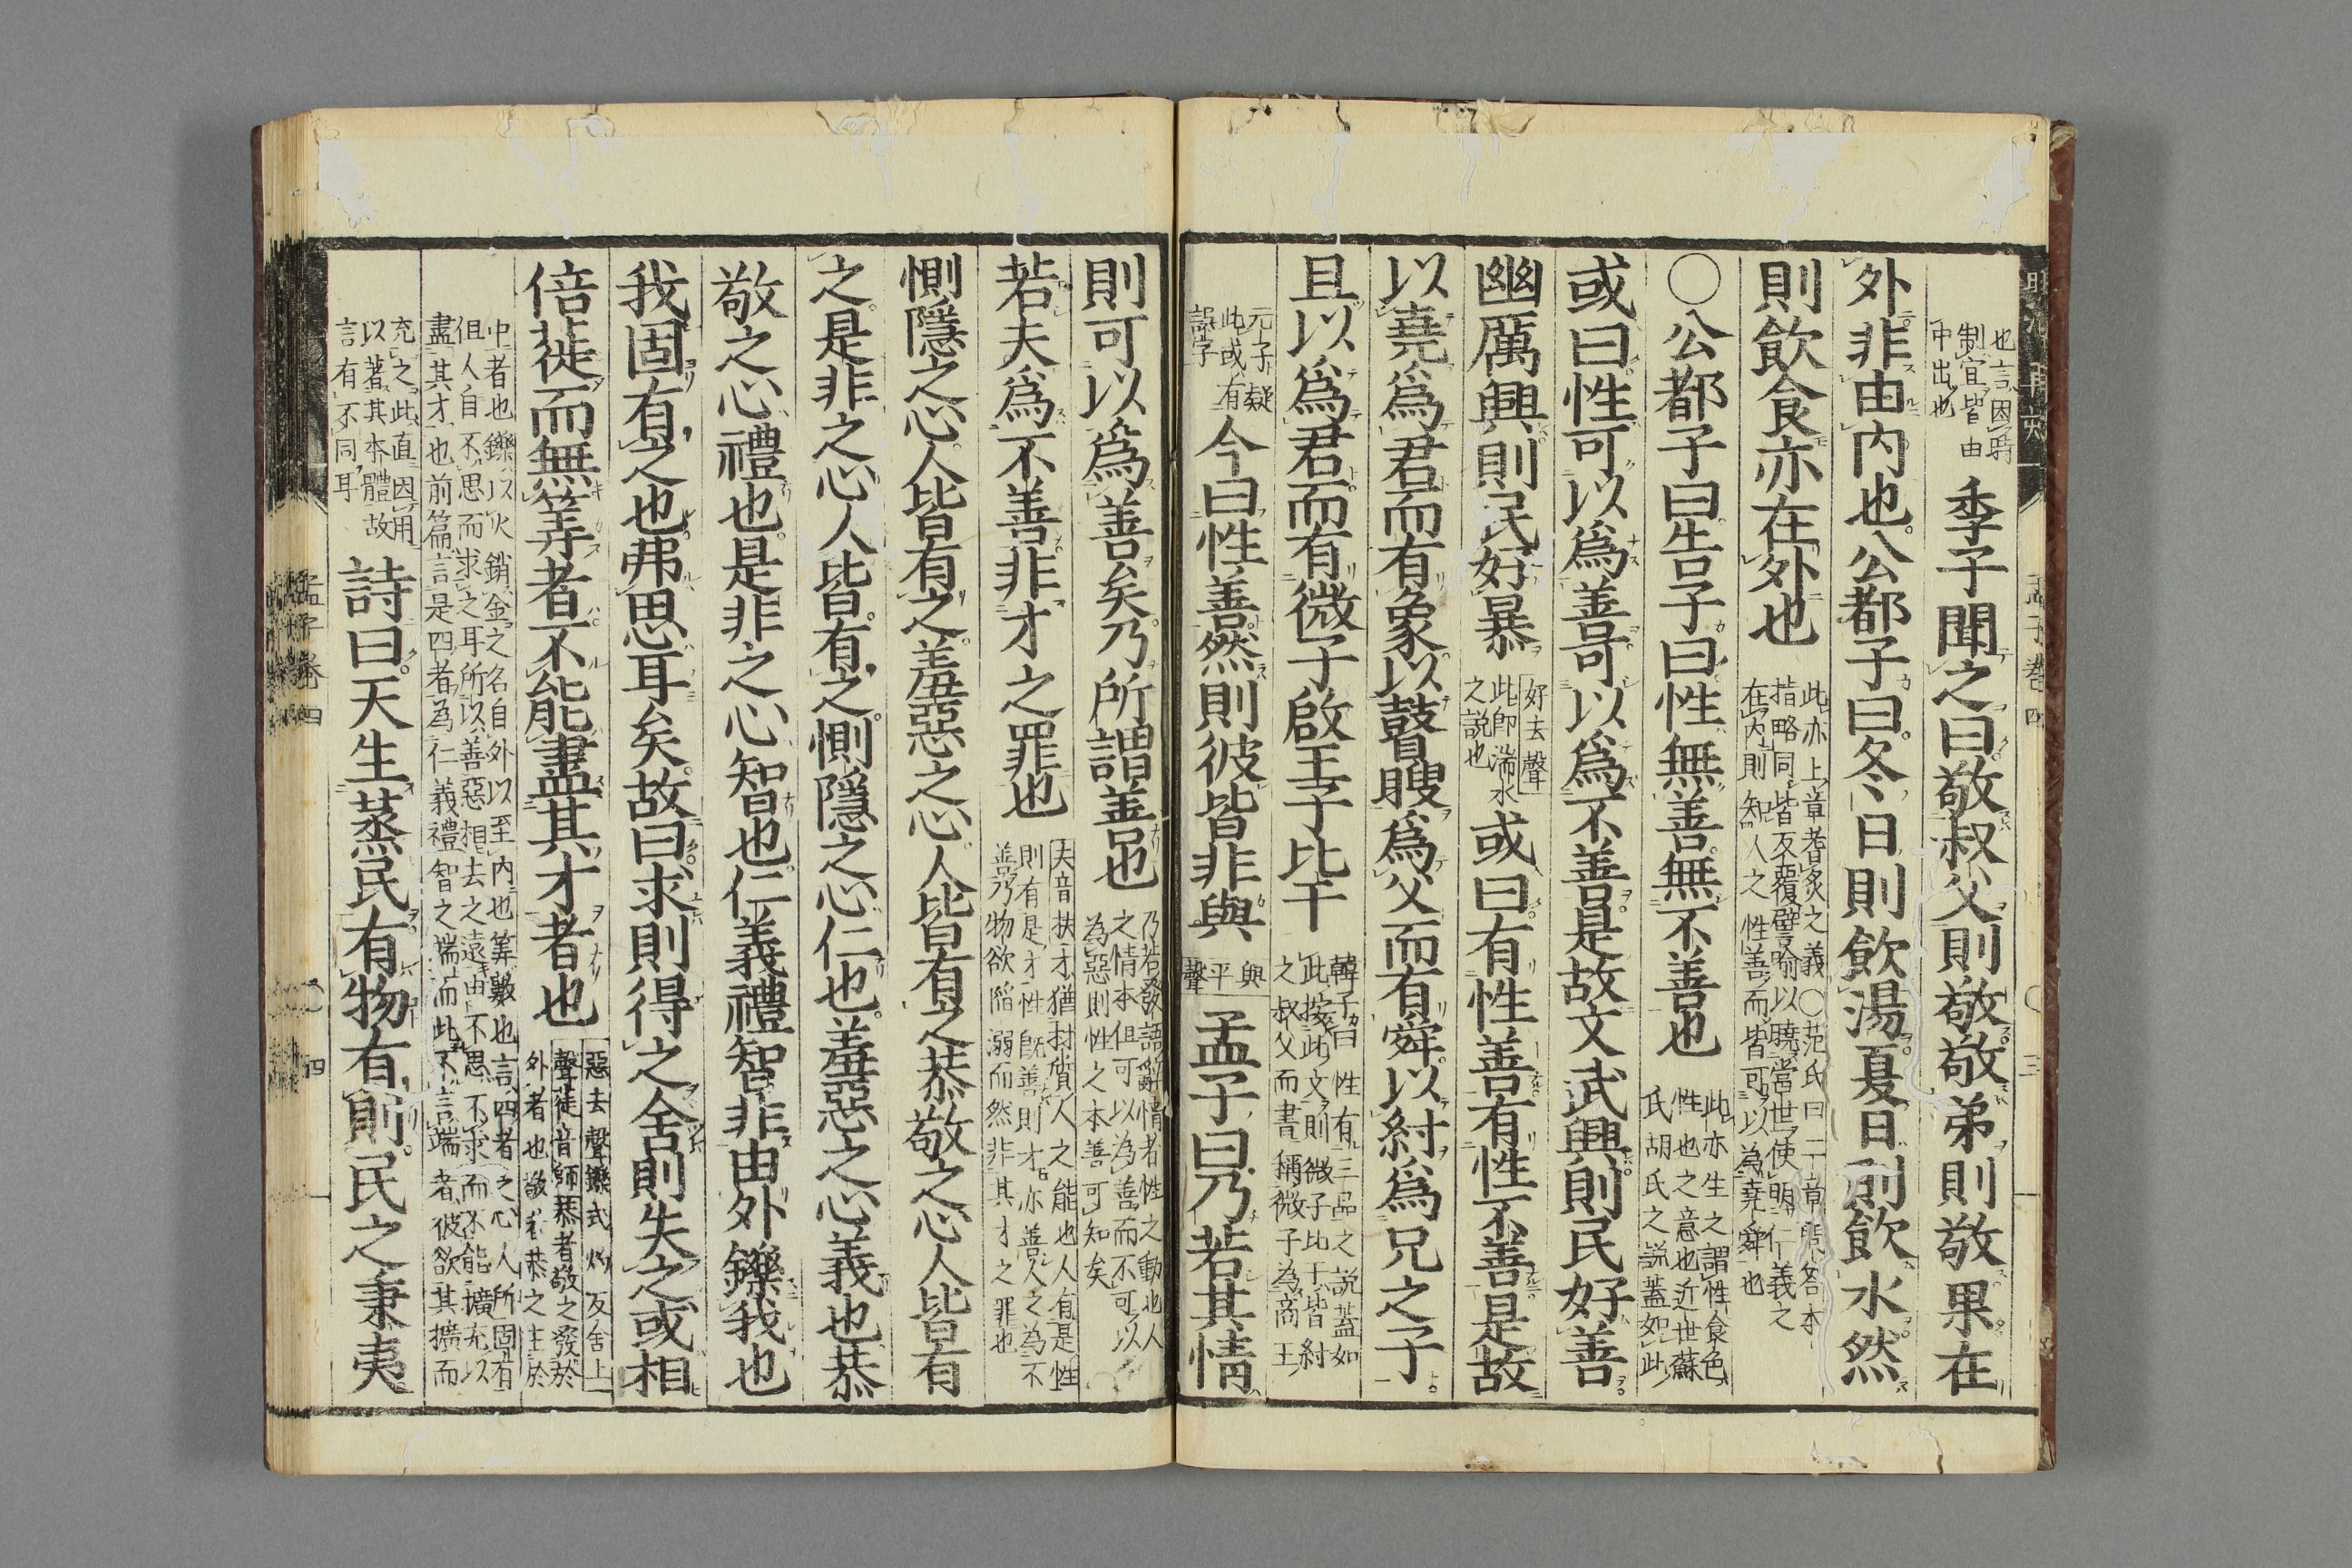 也言因時
制宜皆由
中出也
季子聞之曰敬叔父則敬敬弟則敬果在
外非由内也公都子曰冬日則飲湯夏日則飲水然
則飲食亦在外也
此亦上章耆炙之義○范氏曰二章問答大
指略同皆反覆譬喻以曉當世使明仁義之
在内則知人之性善而皆可以為堯舜也
○公都子曰告子曰性無善無不善也
此亦生之謂性食色
性也之意也近世蘇
氏胡氏之説蓋如此
或曰性可以爲善可以爲不善是故文武興則民好善
幽厲興則民好暴
好去聲
此卽湍水
之説也
或曰有性善有性不善是故
以堯爲君而有象以瞽瞍爲父而有舜以紂爲兄之子
且以爲君而有微子啟王子比干
韓子曰性有三品之説蓋如
此按此文則微子比干皆紂
之叔父而書稱微子為商王
元子疑
此或有
誤字
今曰性善然則彼皆非與
與
平
聲
孟子曰乃若其情
則可以爲善矣乃所謂善也
乃若發語辭情者性之動也人
之情本但可以為善而不可以
為惡則性之本善可知矣
若夫爲不善非才之罪也
夫音扶才猶材質人之能也人有是性
則有是才性既善則才亦善人之為不
善乃物欲陷溺而然非其才之罪也
惻隱之心人皆有之羞惡之心人皆有之恭敬之心人皆有
之是非之心人皆有之惻隱之心仁也羞惡之心義也恭
敬之心禮也是非之心智也仁義禮智非由外鑠我也
我固有之也弗思耳矣故曰求則得之舍則失之或相
倍蓰而無筭者不能盡其才者也
惡去聲鑠式灼反舍上
聲蓰音師恭者敬之發於
外者也敬者恭之主於
中者也鑠以火銷金之名自外以至内也筭數也言四者之心人所固有
但人自不思而求之耳所以善惡相去之遠由不思不求而不能擴充以
盡其才也前篇言是四者為仁義禮智之端而此不言端者彼欲其擴而
充之此直因用
以著其本體故
言有不同耳
詩曰天生蒸民有物有則民之秉夷
孟子卷四
四